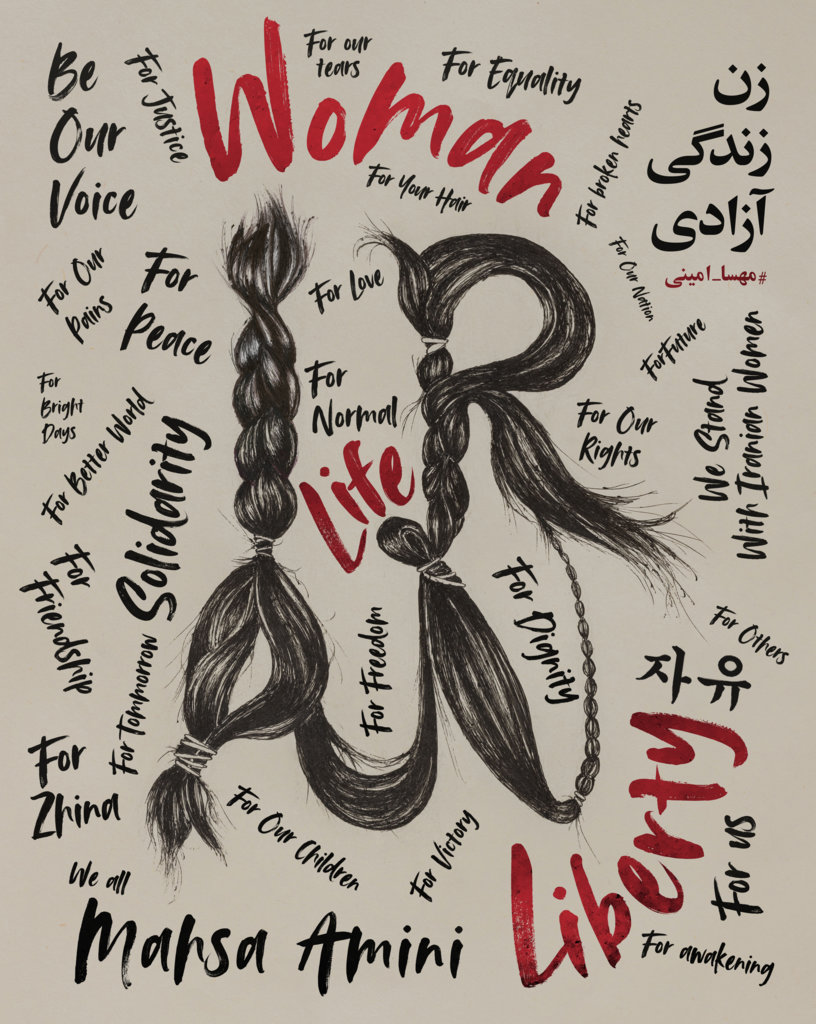 Be
Our
Voice
For Justice
Woman
For our
tears
For Equality
For Your Hair
For broken hearts
زن
زندگی
آزادی
#مهسا_امینی
For Our
Pains
For
Peace
For Love
For Our Nation
For Future
For
Bright
Days
For Better World
Solidarity
For
Normal
Life
For Our
Rights
We Stand
With Iranian Women
For
Friendship
For Tommorrow
For Freedom
For Dignity
For Others
자유
Liberty
For
Zhina
For Our Children
For Victory
For us
We all
Mahsa Amini
For awakening